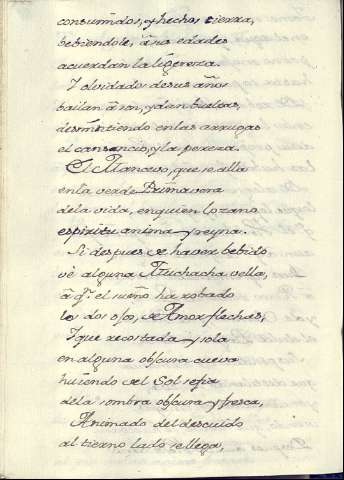 consumidos, y hechos tierra,
bebiendole, a nõs edades
acuerdan la ligereza.
Y olvidados de sus años
bailan a son, y dan bueltas,
desmintiendo en las arrugas
el cansancio, y la pereza.
El Mancevo, que se alla
en la verde Primavera
de la vida, en quien lozano
espiritu anima y reyna.
Si despues de haver bebido
vè alguna Muchacha vella,
â qͤ. el sueño ha robado
los dos ojos, de Amor flechas,
Y que recostada y sola
en alguna obscura cueva
huiendo del Sol se fia
de la sombra obscura y fresca,
Animado del descuido
al tierno lado se llega,